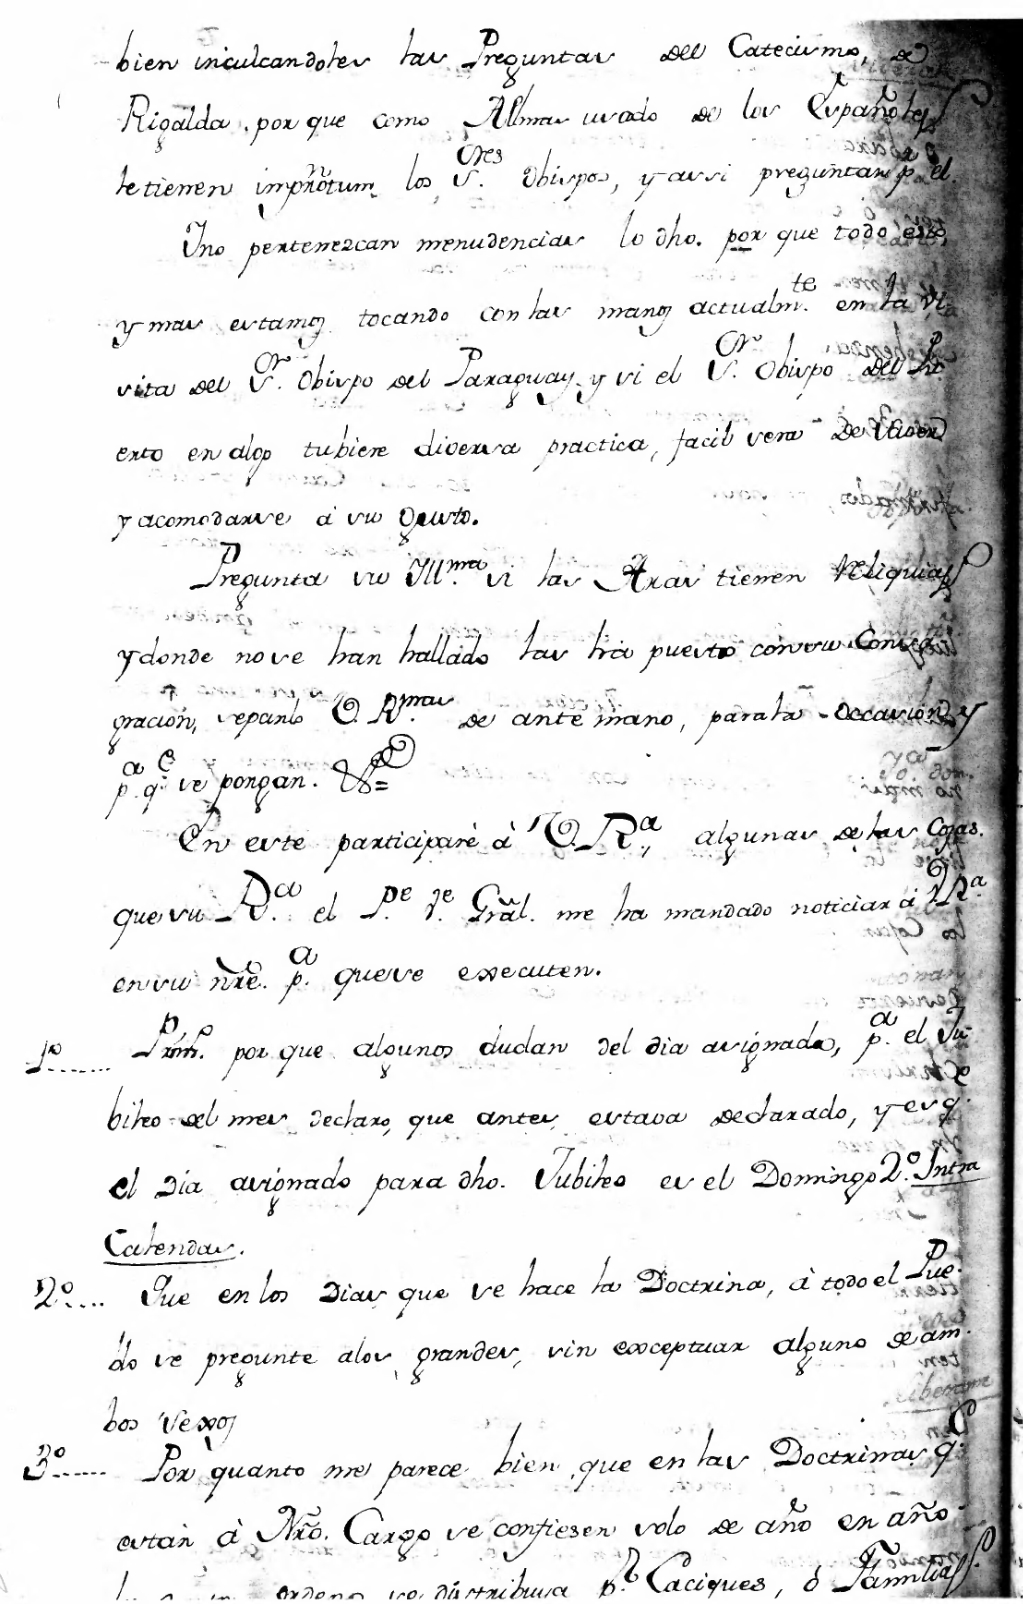 bien inculcandoles las Preguntas del Catecismo, de
Rigalda, por que como Allmas usado de los Españoles
le tienen impromtum los S.res Obispos, y assi preguntan p. el.
Ino pertenezcan menudencias lo dho. por que todo esto,
y mas estamos tocando con las manos actualm.te en la Vi
sita del S.or Obispo del Paraguay, y si el S.or Obispo del Pu
erto en algo tubiere diversa practica, facil sera
y acomodarse á su Gusto.
Pregunta su Ill.ma si las Aras tienen Reliquias
y donde no se han hallado las hà puesto con su Consa
gracion, sepanlo V. R.mas de ante mano, para la occasion, y
p.a q.e se pongan. &.a =
En este participarè à V. R.a algunas de las Cosas.
que su R.a el P.e V.e Gral. me ha mandado noticiar á V. R.a
en su nre. p.a que se executen.
1.o Prim.o por que algunos dudan del dia asignado, p.a el Ju
bileo del mes declaro, que antes estava declarado, y es q.e
el Dia asignado para dho. Jubileo es el Domingo 2.o Intra
Calendas.
2.o Que en los Dias que se hace la Doctrina, à todo el Pue
blo se pregunte alos grandes, sin exceptuar alguno de am
bos sexos
3.o Por quanto me parece bien, que en las Doctrinas q.e
estàn à Nro. Cargo se confiesen solo de año en año
ordena se distribuya p.r Caciques, ò Familias